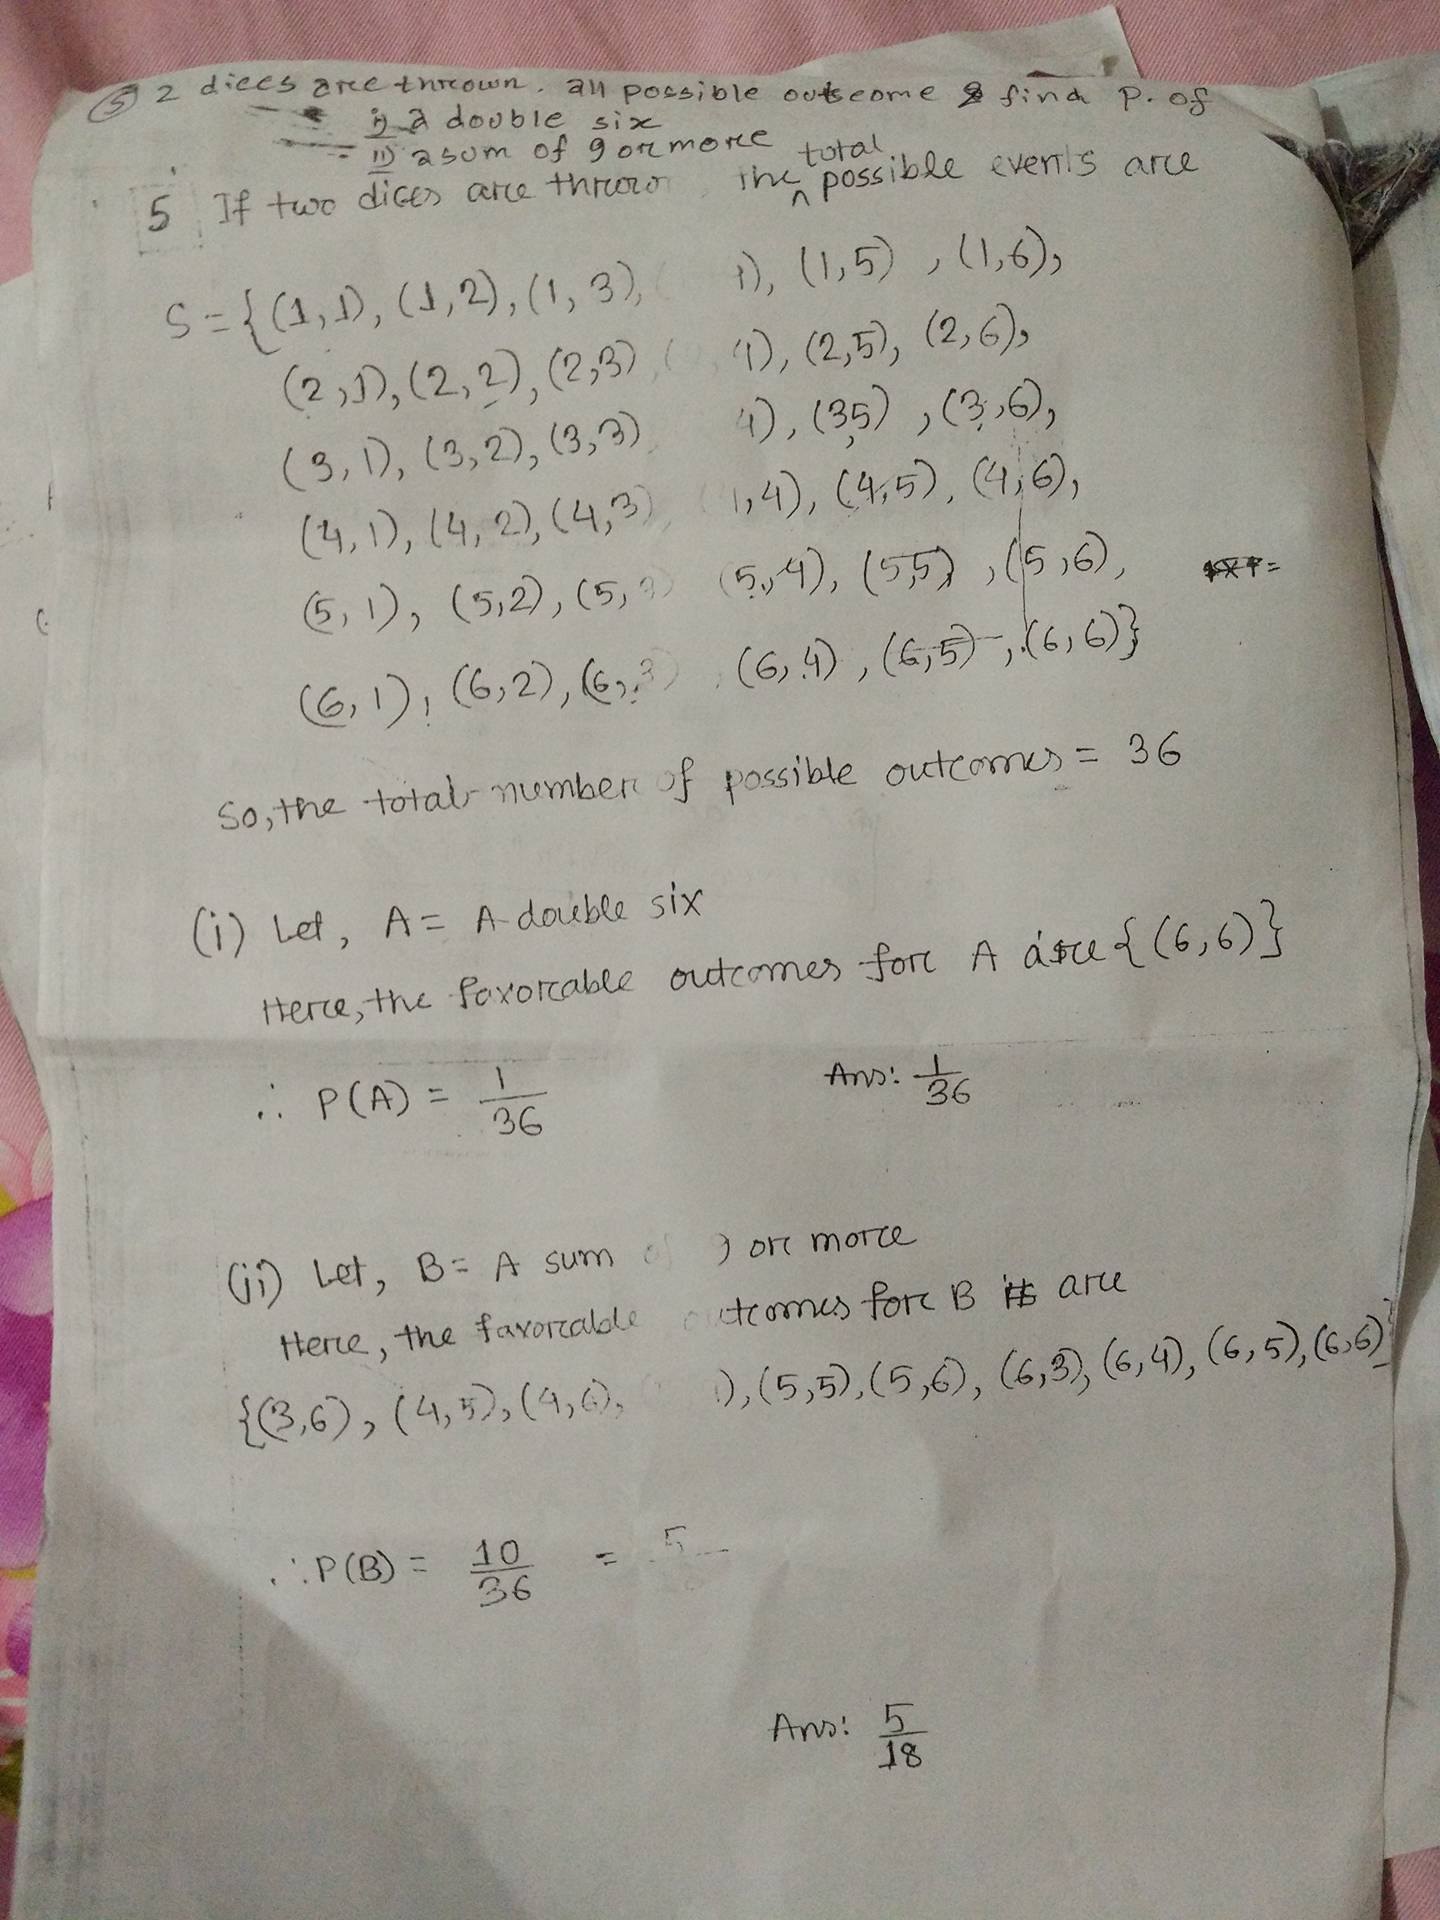 ⑤ 2 dices are thrown. all possible outcome & find P. of
i) a double six
ii) a sum of 9 or more
5 If two dices are throw the total possible events are
S = {(1,1), (1,2), (1,3), 4), (1,5), (1,6),
(2,1), (2,2), (2,3), 4), (2,5), (2,6),
(3,1), (3,2), (3,3) 4), (3,5), (3,6),
(4,1), (4,2), (4,3), ,4), (4,5), (4,6),
(5,1), (5,2), (5,3) (5,4), (5,5), (5,6),
(6,1), (6,2), (6,3), (6,4), (6,5), (6,6)}
So, the total number of possible outcomes = 36
(i) Let, A = A double six
Here, the favorable outcomes for A are {(6,6)}
∴ P(A) = 1/36 Ans: 1/36
(ii) Let, B = A sum of or more
Here, the favorable outcomes for B are
{(3,6), (4,5), (4,6), ), (5,5), (5,6), (6,3), (6,4), (6,5), (6,6)}
∴ P(B) = 10/36 = 5
Ans: 5/18